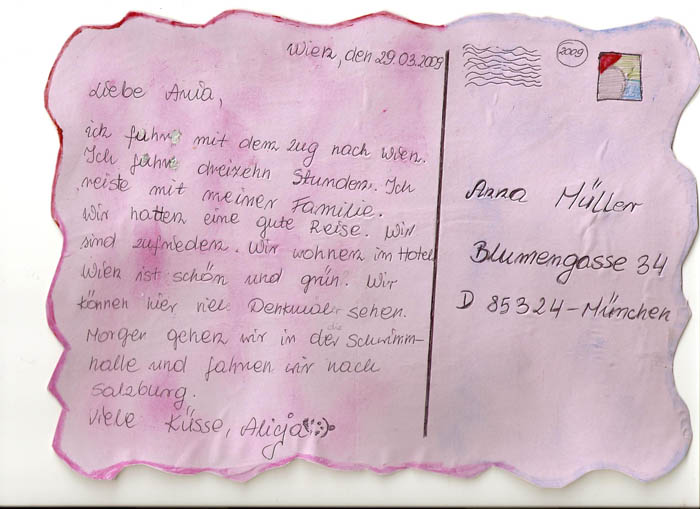 Wien, den 29.03.2009
Liebe Ania,
ich fuhr mit dem zug nach Wien.
Ich fuhr dreizehn Stunden. Ich
reiste mit meiner Familie.
Wir hatten eine gute Reise. Wir
sind zufrieden. Wir wohnen im Hotel
Wien ist schön und grün. Wir
können hier viele Denkmaler sehen.
Morgen gehen wir in der Schwimm-
halle und fahren wir nach
Salzburg.
Viele Küsse, Alicja :)
2009
Anna Müller
Blumengasse 34
D 85324-München